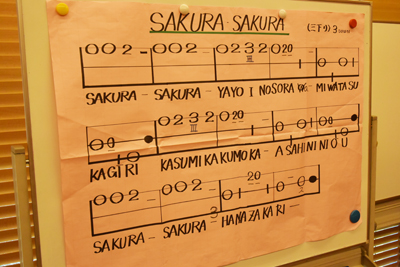 SAKURA-SAKURA
(三下り) 3
0 0 2 - 0 0 2 - 0 2 3 2 0 20
III
SAKURA - SAKURA - YAYO I NOSORA MI WATASU
0 2 3 2 0 20
III
KAGIRI KASUMIKAKUMOKA - ASAHI NI NI O U
0 0 2 - 0 0 2 -
SAKURA - SAKURA - HANAZAKARI -